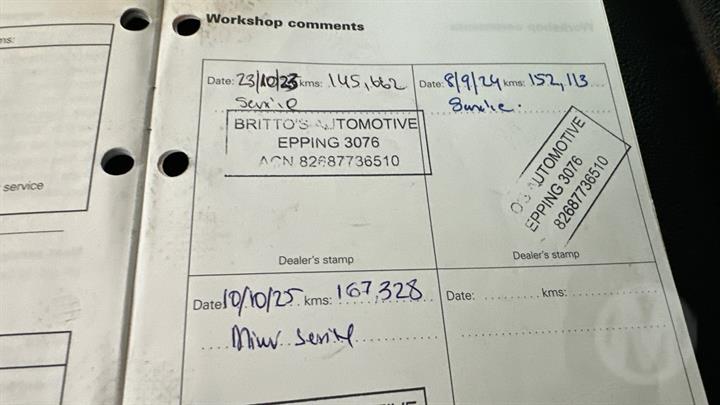 Workshop comments
ns:
Date: 23/10/23 kms: 145,662
Service
BRITTO'S AUTOMOTIVE
EPPING 3076
ACN 82687736510
Dealer's stamp
Date: 8/9/24 kms: 152,113
Service.
O'S AUTOMOTIVE
EPPING 3076
82687736510
Dealer's stamp
service
Date 10/10/25 kms: 167,328
Minor Service
Date: kms: